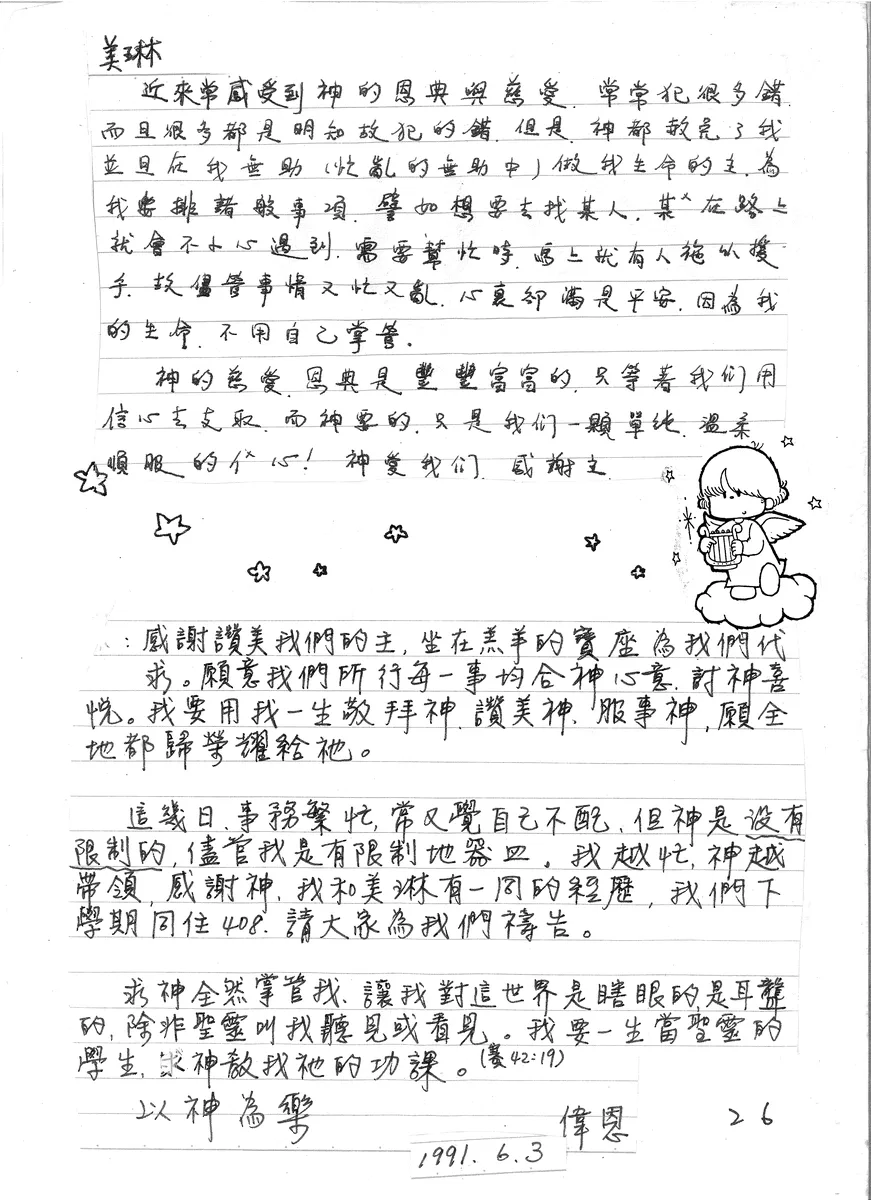 美琳
近來常感受到神的恩典與慈愛.常常犯很多錯.
而且很多都是明知故犯的錯.但是.神都赦免了我
並且在我無助(忙亂的無助中)做我生命的主.為
我安排諸般事項.譬如想要去找某人.某人在路上
就會不小心遇到.需要幫忙時.馬上就有人施以援
手.故儘管事情又忙又亂.心裏卻滿是平安.因為我
的生命.不用自己掌管。
神的慈愛.恩典是豐豐富富的.只等著我们用
信心去支取.而神要的.只是我们一顆單純.溫柔
順服的 心!神愛我们.感謝主.
:感謝讚美我們的主,坐在羔羊的寶座為我們代
求。願意我們所行每一事均合神心意.討神喜
悅。我要用我一生敬拜神.讚美神.服事神,願全
地都歸榮耀給祂。
這幾日.事務繁忙,常又覺自己不配.但神是沒有
限制的,儘管我是有限制地器皿。我越忙,神越
帶領,感謝神.我和美琳有一同的經歷,我們下
學期同住408.請大家為我們禱告。
求神全然掌管我.讓我對這世界是瞎眼的是耳聾
的,除非聖靈叫我聽見或看見。我要一生當聖靈的
學生.求神教我祂的功課。(賽42:19)
以神為樂 偉恩 26
1991.6.3